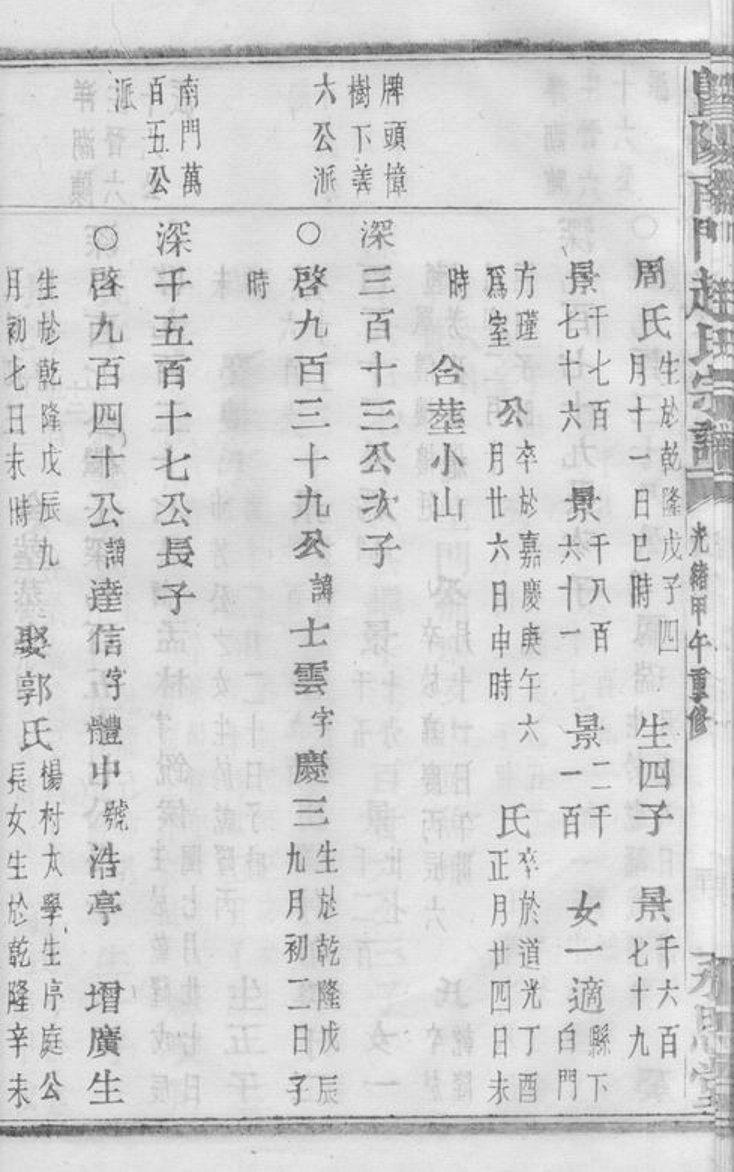 暨陽南門趙氏宗譜 光緒甲午重修 永思堂
周氏生於乾隆戊子四月十一日巳時 生四子 景千六百七十九
景千七百七十六 景千八百六十一 景二千一百 女一適縣下白門
方瑾爲室 公卒於嘉慶庚午六月廿六日申時 氏卒於道光丁酉正月廿四日未
時 合塟小山
牌頭樟樹下義六公派
深三百十三公次子
○啓九百三十九公諱士雲字慶三生於乾隆戊辰九月初二日子
時
南門萬百五公派
深千五百十七公長子
○啓九百四十公諱達信字體中號浩亭 增廣生
生於乾隆戊辰九月初七日未時 娶郭氏楊村太學生序庭公長女生於乾隆辛未